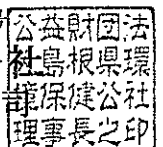 公益財団法
島根県環
境保健公社
理事長之印
社